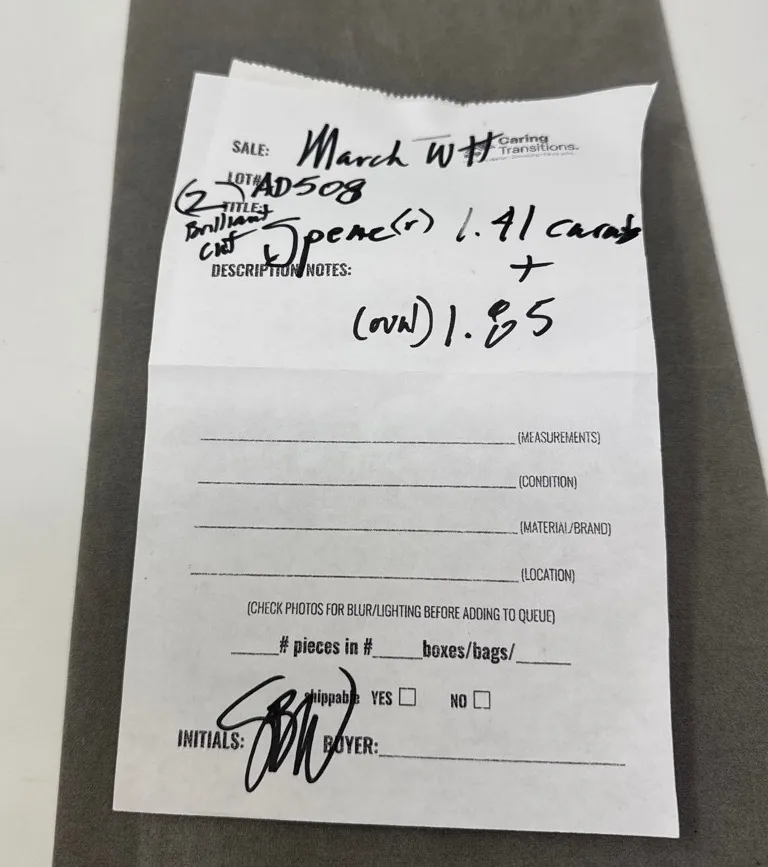 SALE: March WH Caring Transitions.
LOT# AD508
(2) TITLE:
Brilliant Cut 1.41 carats
+
DESCRIPTION/NOTES:
1.85
(MEASUREMENTS)
(CONDITION)
(MATERIAL/BRAND)
(LOCATION)
(CHECK PHOTOS FOR BLUR/LIGHTING BEFORE ADDING TO QUEUE)
# pieces in # boxes/bags/
shippable YES NO
INITIALS: SBW BUYER: